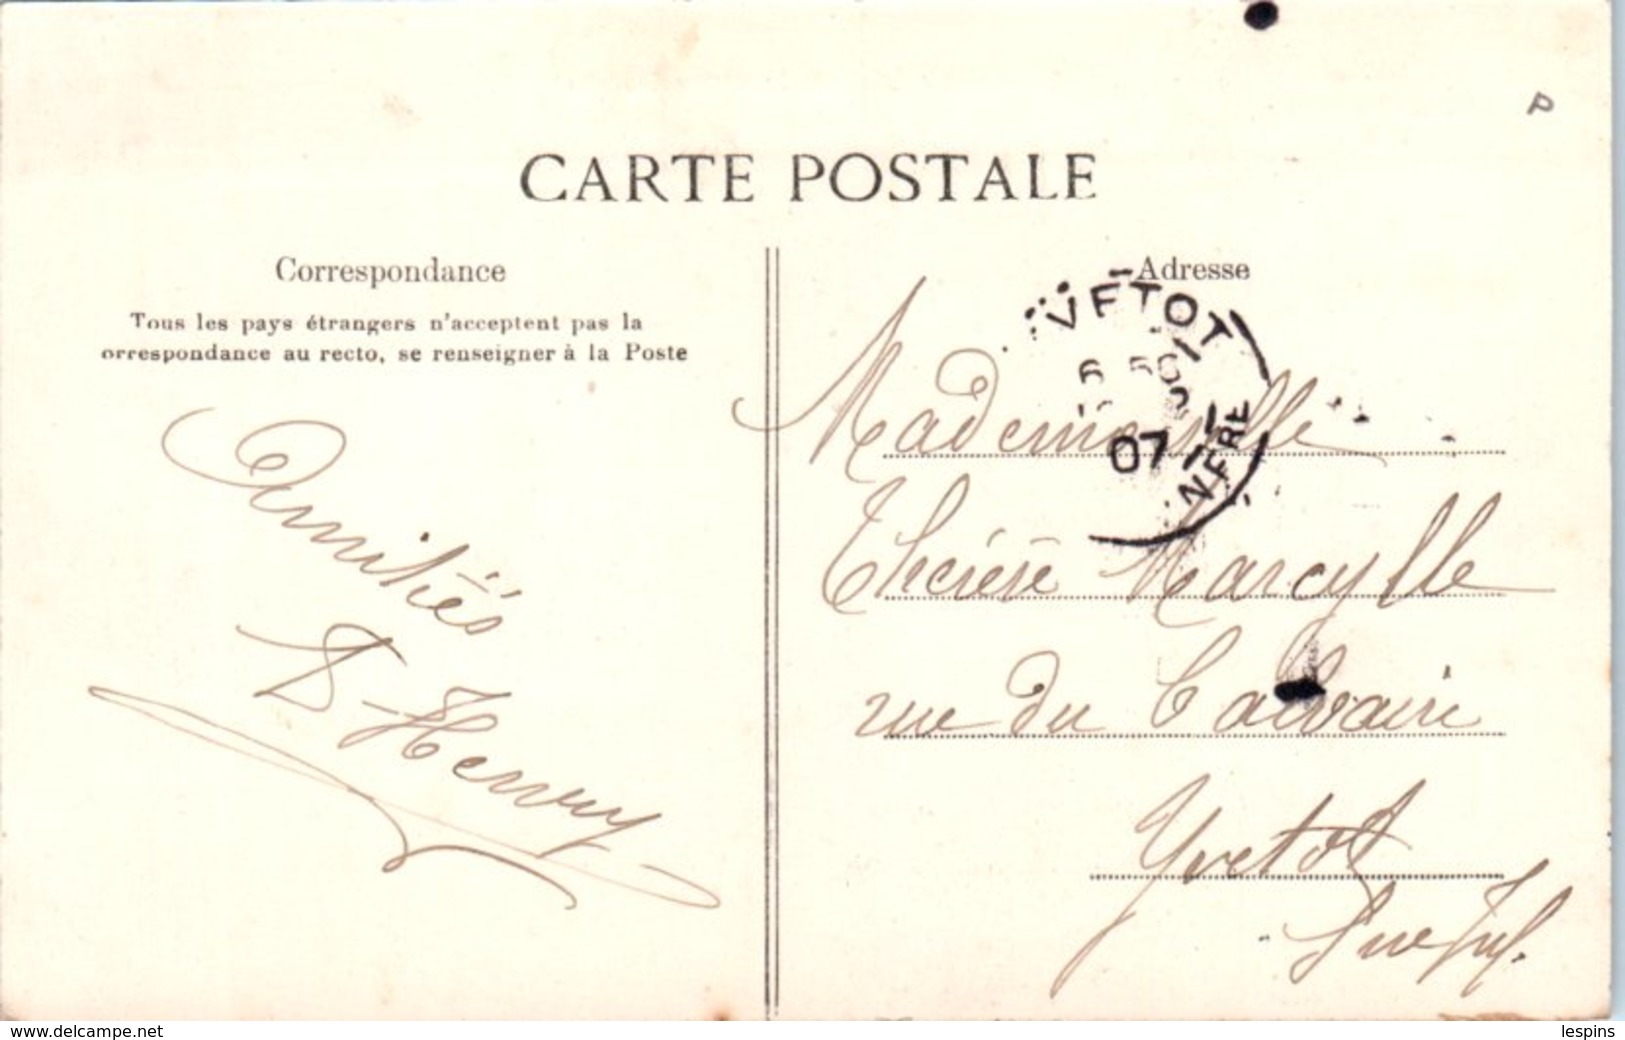 P
CARTE POSTALE
Correspondance
Tous les pays étrangers n'acceptent pas la
orrespondance au recto, se renseigner à la Poste
Amitiés
D-Henry
Adresse
VETOT
6 50
07
NFRE
Mademoiselle
Thérèse Marcylle
rue du Calvaire
Yvetot
Sne Inf.
www.delcampe.net
lespins